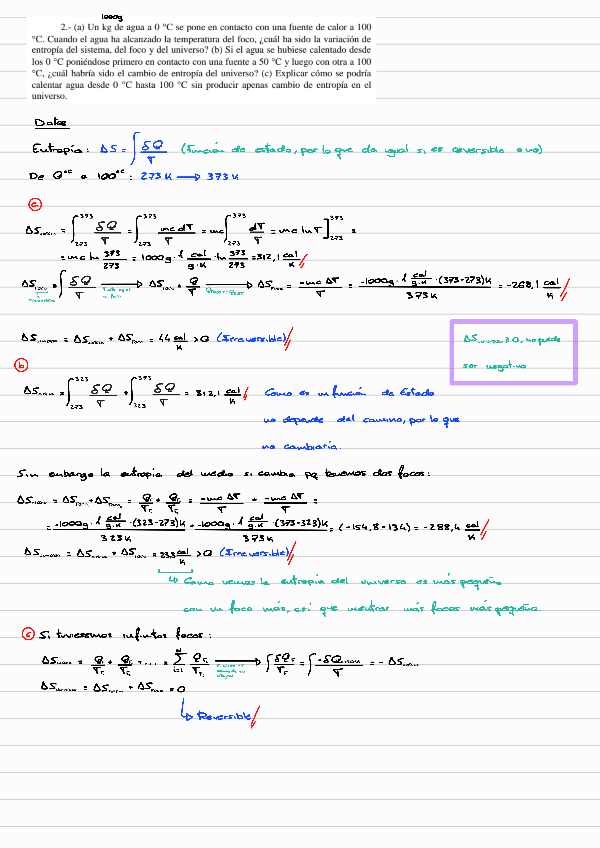 1000g
2.- (a) Un kg de agua a 0 °C se pone en contacto con una fuente de calor a 100
°C. Cuando el agua ha alcanzado la temperatura del foco, ¿cuál ha sido la variación de
entropía del sistema, del foco y del universo? (b) Si el agua se hubiese calentado desde
los 0 °C poniéndose primero en contacto con una fuente a 50 °C y luego con otra a 100
°C, ¿cuál habría sido el cambio de entropía del universo? (c) Explicar cómo se podría
calentar agua desde 0 °C hasta 100 °C sin producir apenas cambio de entropía en el
universo.
Datos
Entropía: ΔS = ∫ δQ/T (Función de estado, por lo que da igual si es reversible o no)
De 0°C a 100°C: 273 K → 373 K
a
ΔS = ∫₂₇₃³⁷³ δQ/T = ∫₂₇₃³⁷³ mc dT/T = mc ∫₂₇₃³⁷³ dT/T = mc ln T]₂₇₃³⁷³ =
= mc ln 373/273 = 1000g · 1 cal/g·K · ln 373/273 = 312,1 cal/K
ΔS foco = ∫ δQ/T → ΔS foco = Q/T → ΔS foco = -mc ΔT/T = -1000g · 1 cal/g·K · (373-273)K/373K = -268,1 cal/K
ΔS = ΔS + ΔS foco = 44 cal/K > 0 (Irreversible)
ΔS universo ≥ 0, no puede
ser negativa
b
ΔS = ∫₂₇₃³²³ δQ/T + ∫₃₂₃³⁷³ δQ/T = 312,1 cal/K Como es una función de Estado
no depende del camino, por lo que
no cambiaría.
Sin embargo la entropía del medio si cambia pq tenemos dos focos:
ΔS = ΔS foco₁ + ΔS foco₂ = Q₁/T₁ + Q₂/T₂ = -mc ΔT/T + -mc ΔT/T =
= -1000g · 1 cal/g·K · (323-273)K/323K + -1000g · 1 cal/g·K · (373-323)K/373K = (-154,8 - 134) = -288,4 cal/K
ΔS = ΔS + ΔS = 23,3 cal/K > 0 (Irreversible)
↳ Como vemos la entropía del universo es más pequeña
con un foco más, así que mientras más focos más pequeña.
c Si tuviesemos infinitos focos:
ΔS = Q₁/T₁ + Q₂/T₂ + ... = Σ Qi/Ti → ∫ δQ/T = ∫ -δQ/T = - ΔS
ΔS = ΔS + ΔS = 0
↳ Reversible